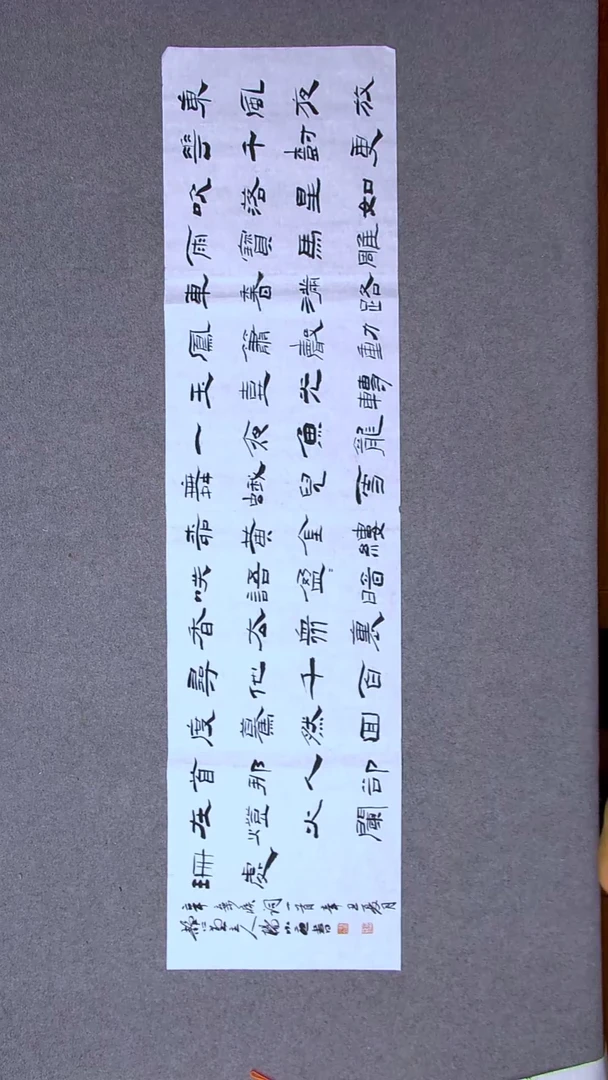 東風夜放
花千樹更
吹落星如
雨寶馬雕
車香滿路
鳳簫聲動
玉壺光轉
一夜魚龍
舞蛾兒雪
柳黃金縷
笑語盈暗
香去眾裏
尋他千百
度驀然回
首那人卻
在燈火闌
珊處
辛棄疾詞一首辛丑夏月
主人